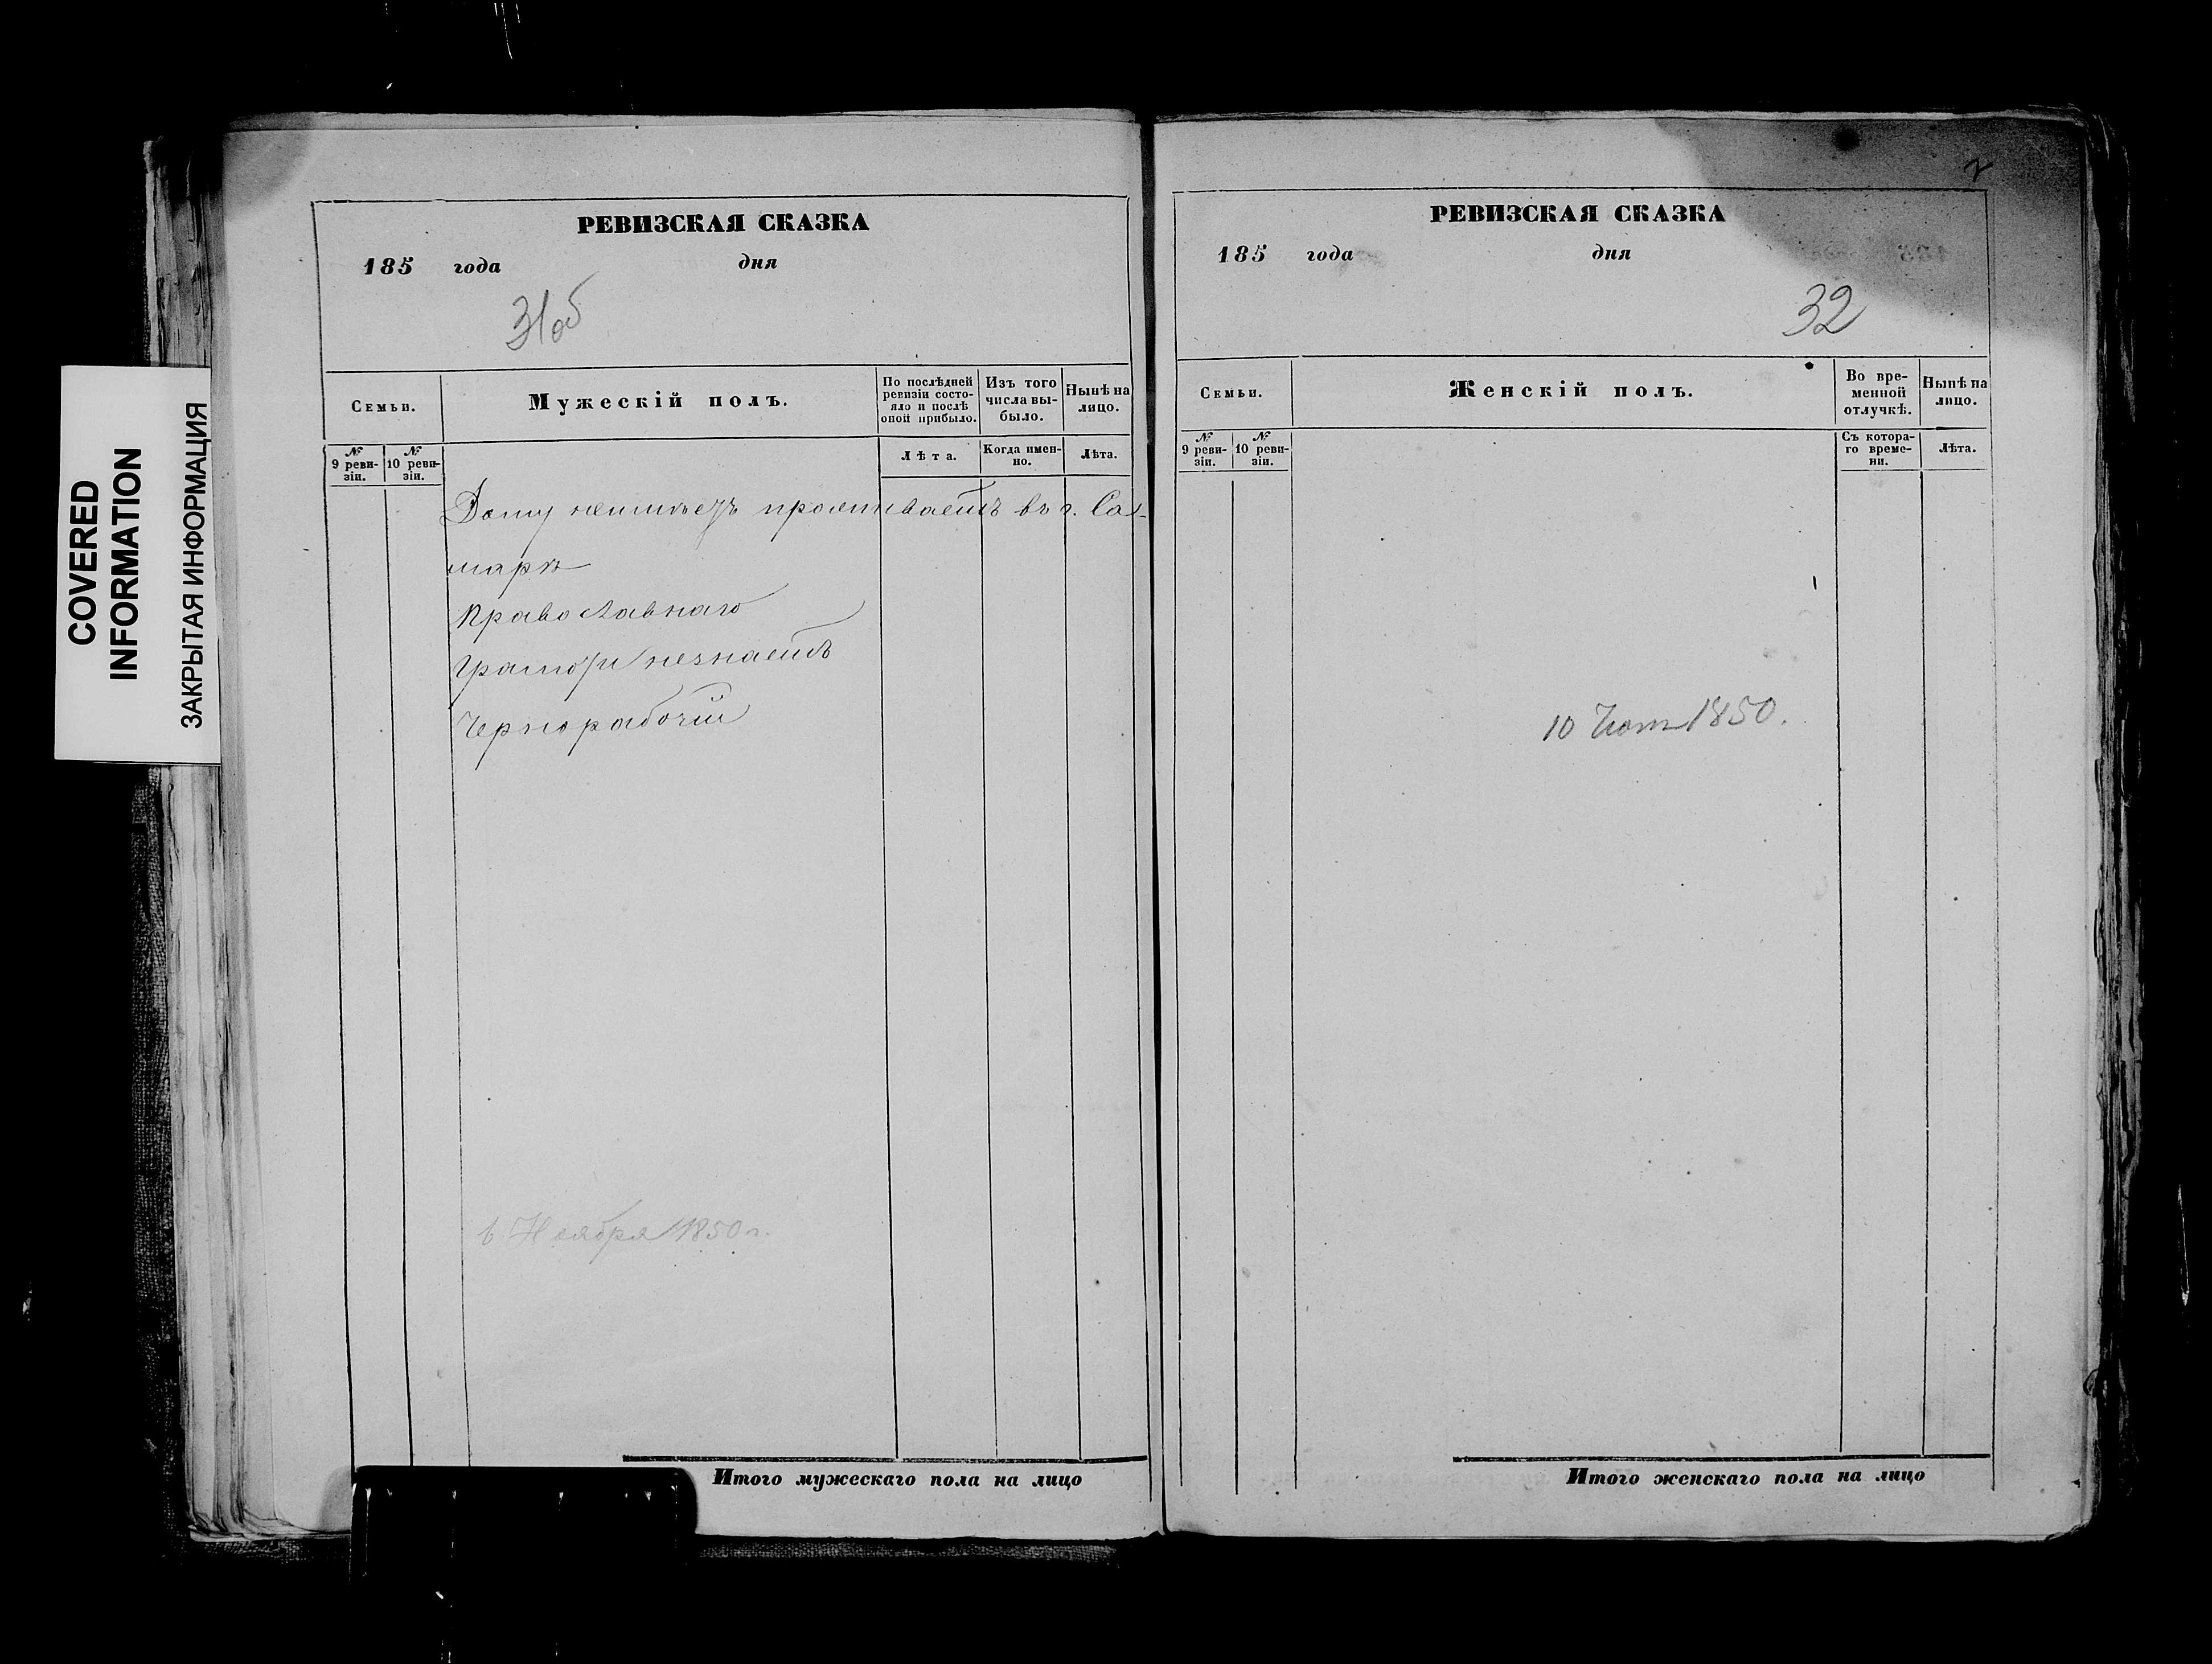 COVERED
INFORMATION
ЗАКРЫТАЯ ИНФОРМАЦИЯ
РЕВИЗСКАЯ СКАЗКА
185 года дня
31об
Семьи.
Мужескій полъ.
По послѣдней ревизіи состояло и послѣ оной прибыло.
Изъ того числа выбыло.
Нынѣ на лицо.
№ 9 ревизіи.
№ 10 ревизіи.
Лѣта.
Когда именно.
Лѣта.
Дому неимѣетъ проживаетъ въ г. Са-
марѣ
Православнаго
Грамоты незнаетъ
Чернорабочій
Ноября 1850 г.
Итого мужескаго пола на лицо
2
РЕВИЗСКАЯ СКАЗКА
185 года дня
32
Семьи.
Женскій полъ.
Во временной отлучкѣ.
Нынѣ на лицо.
№ 9 ревизіи.
№ 10 ревизіи.
Съ котораго времени.
Лѣта.
10 1850.
Итого женскаго пола на лицо